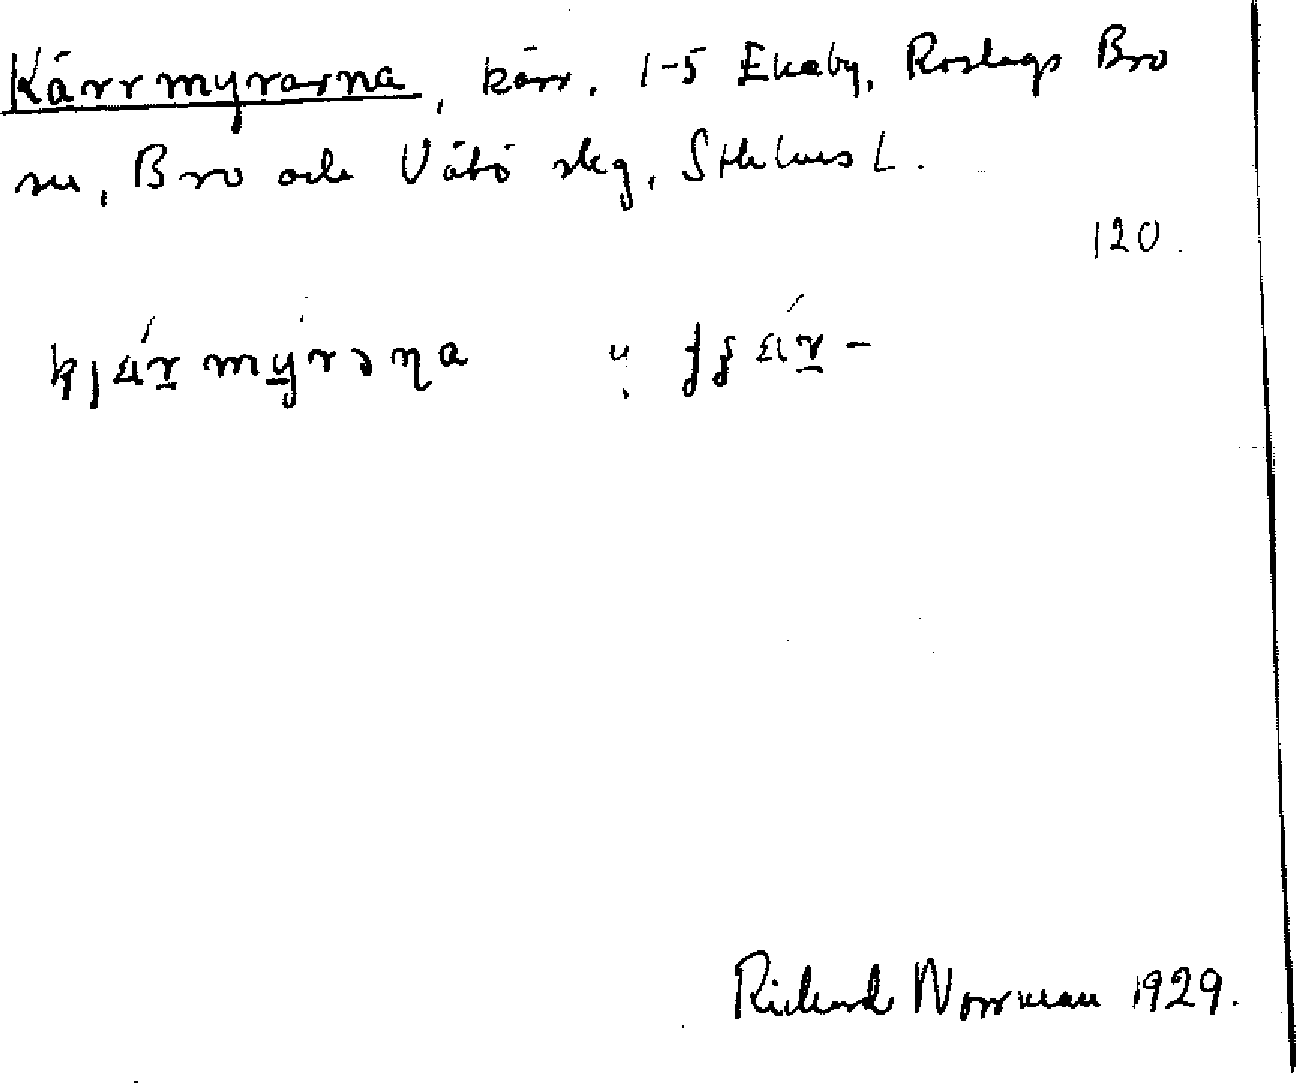 Kärrmyrarna, kärr. 1-5 Ekeby, Roslags Bro
sn, Bro och Vätö skg, Sthlms L.
120.
Rickard Norrman 1929.